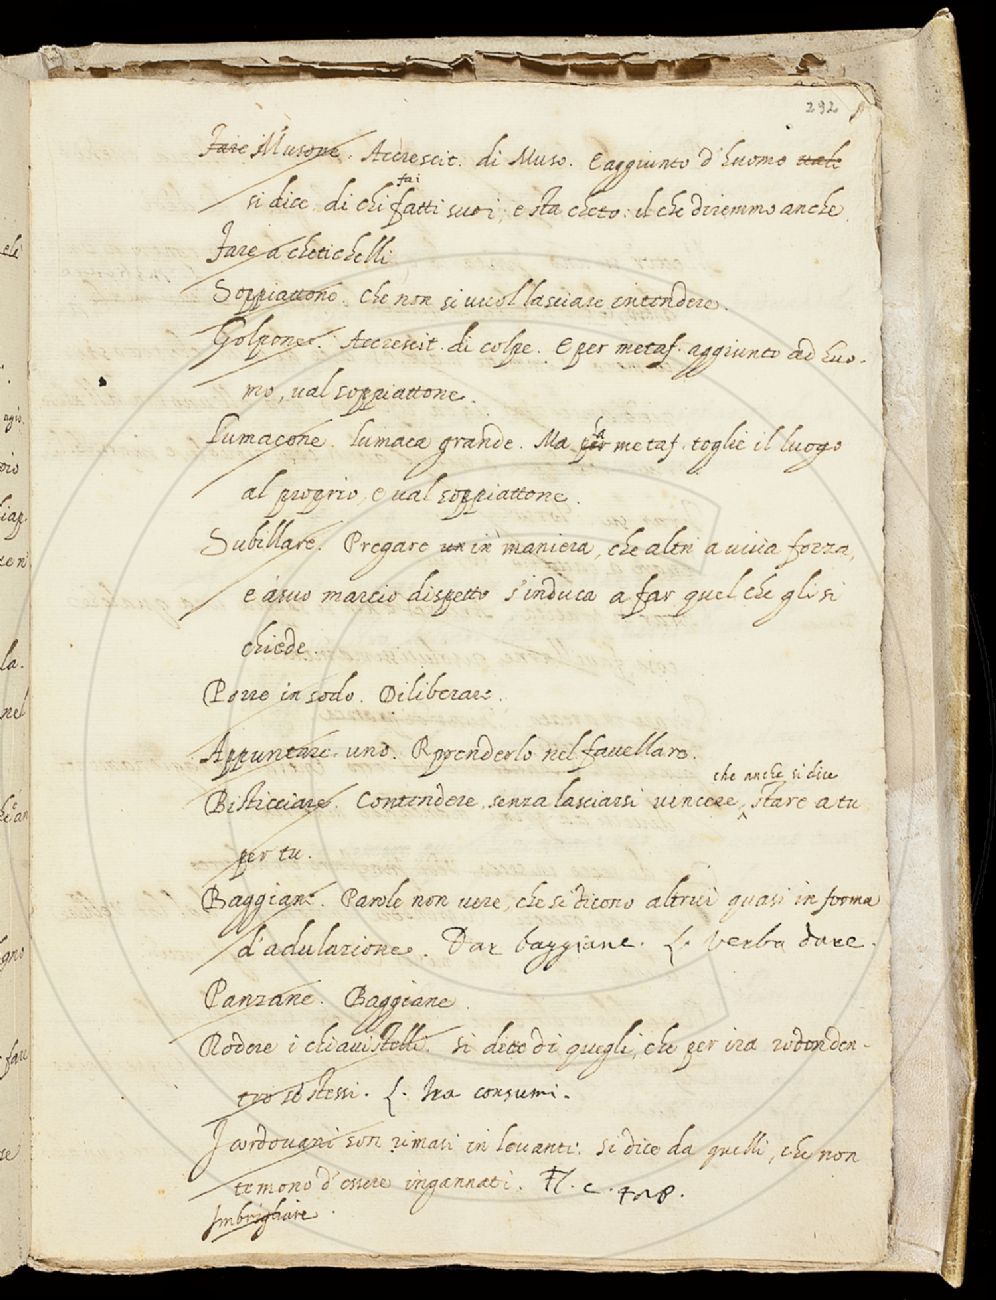 292
Fare Musone. Accrescit. di Muso. E aggiunto d'huomo uale
si dice di chi fa i fatti suoi, e sta cheto: il che diremmo anche
Fare a chetichelli
Soppiattone. Che non si vuol lasciare intendere.
Golpone. Accrescit. di colpe. E per metaf. aggiunto ad huo-
mo, val soppiattone.
Lumacone. Lumaca grande. Ma per la metaf. toglie il luogo
al proprio, e val soppiattone.
Subillare. Pregare un in maniera, che altri a viva forza,
e à suo marcio dispetto s'induca a far quel che gli si
chiede.
Porre in sodo. Diliberare.
Appuntare uno. Rprenderlo nel favellare.
che anche si dice
Bisticciare. Contendere senza lasciarsi vincere, stare a tu
per tu.
Baggiane. Parole non vere, che se dicono altrui quasi in forma
d'adulazione. Dar baggiane. L. verba dare.
Panzane. Baggiane.
Rodere i chiavistelli. Si dice di quegli, che per ira rodonden-
tro se stessi. L. Ira consumi.
I cordovani son rimasi in levanti. Si dice da quelli, che non
temono d'essere ingannati. Fl.
Imbrigliare.
ele
agio.
la.
nel
gno
fare